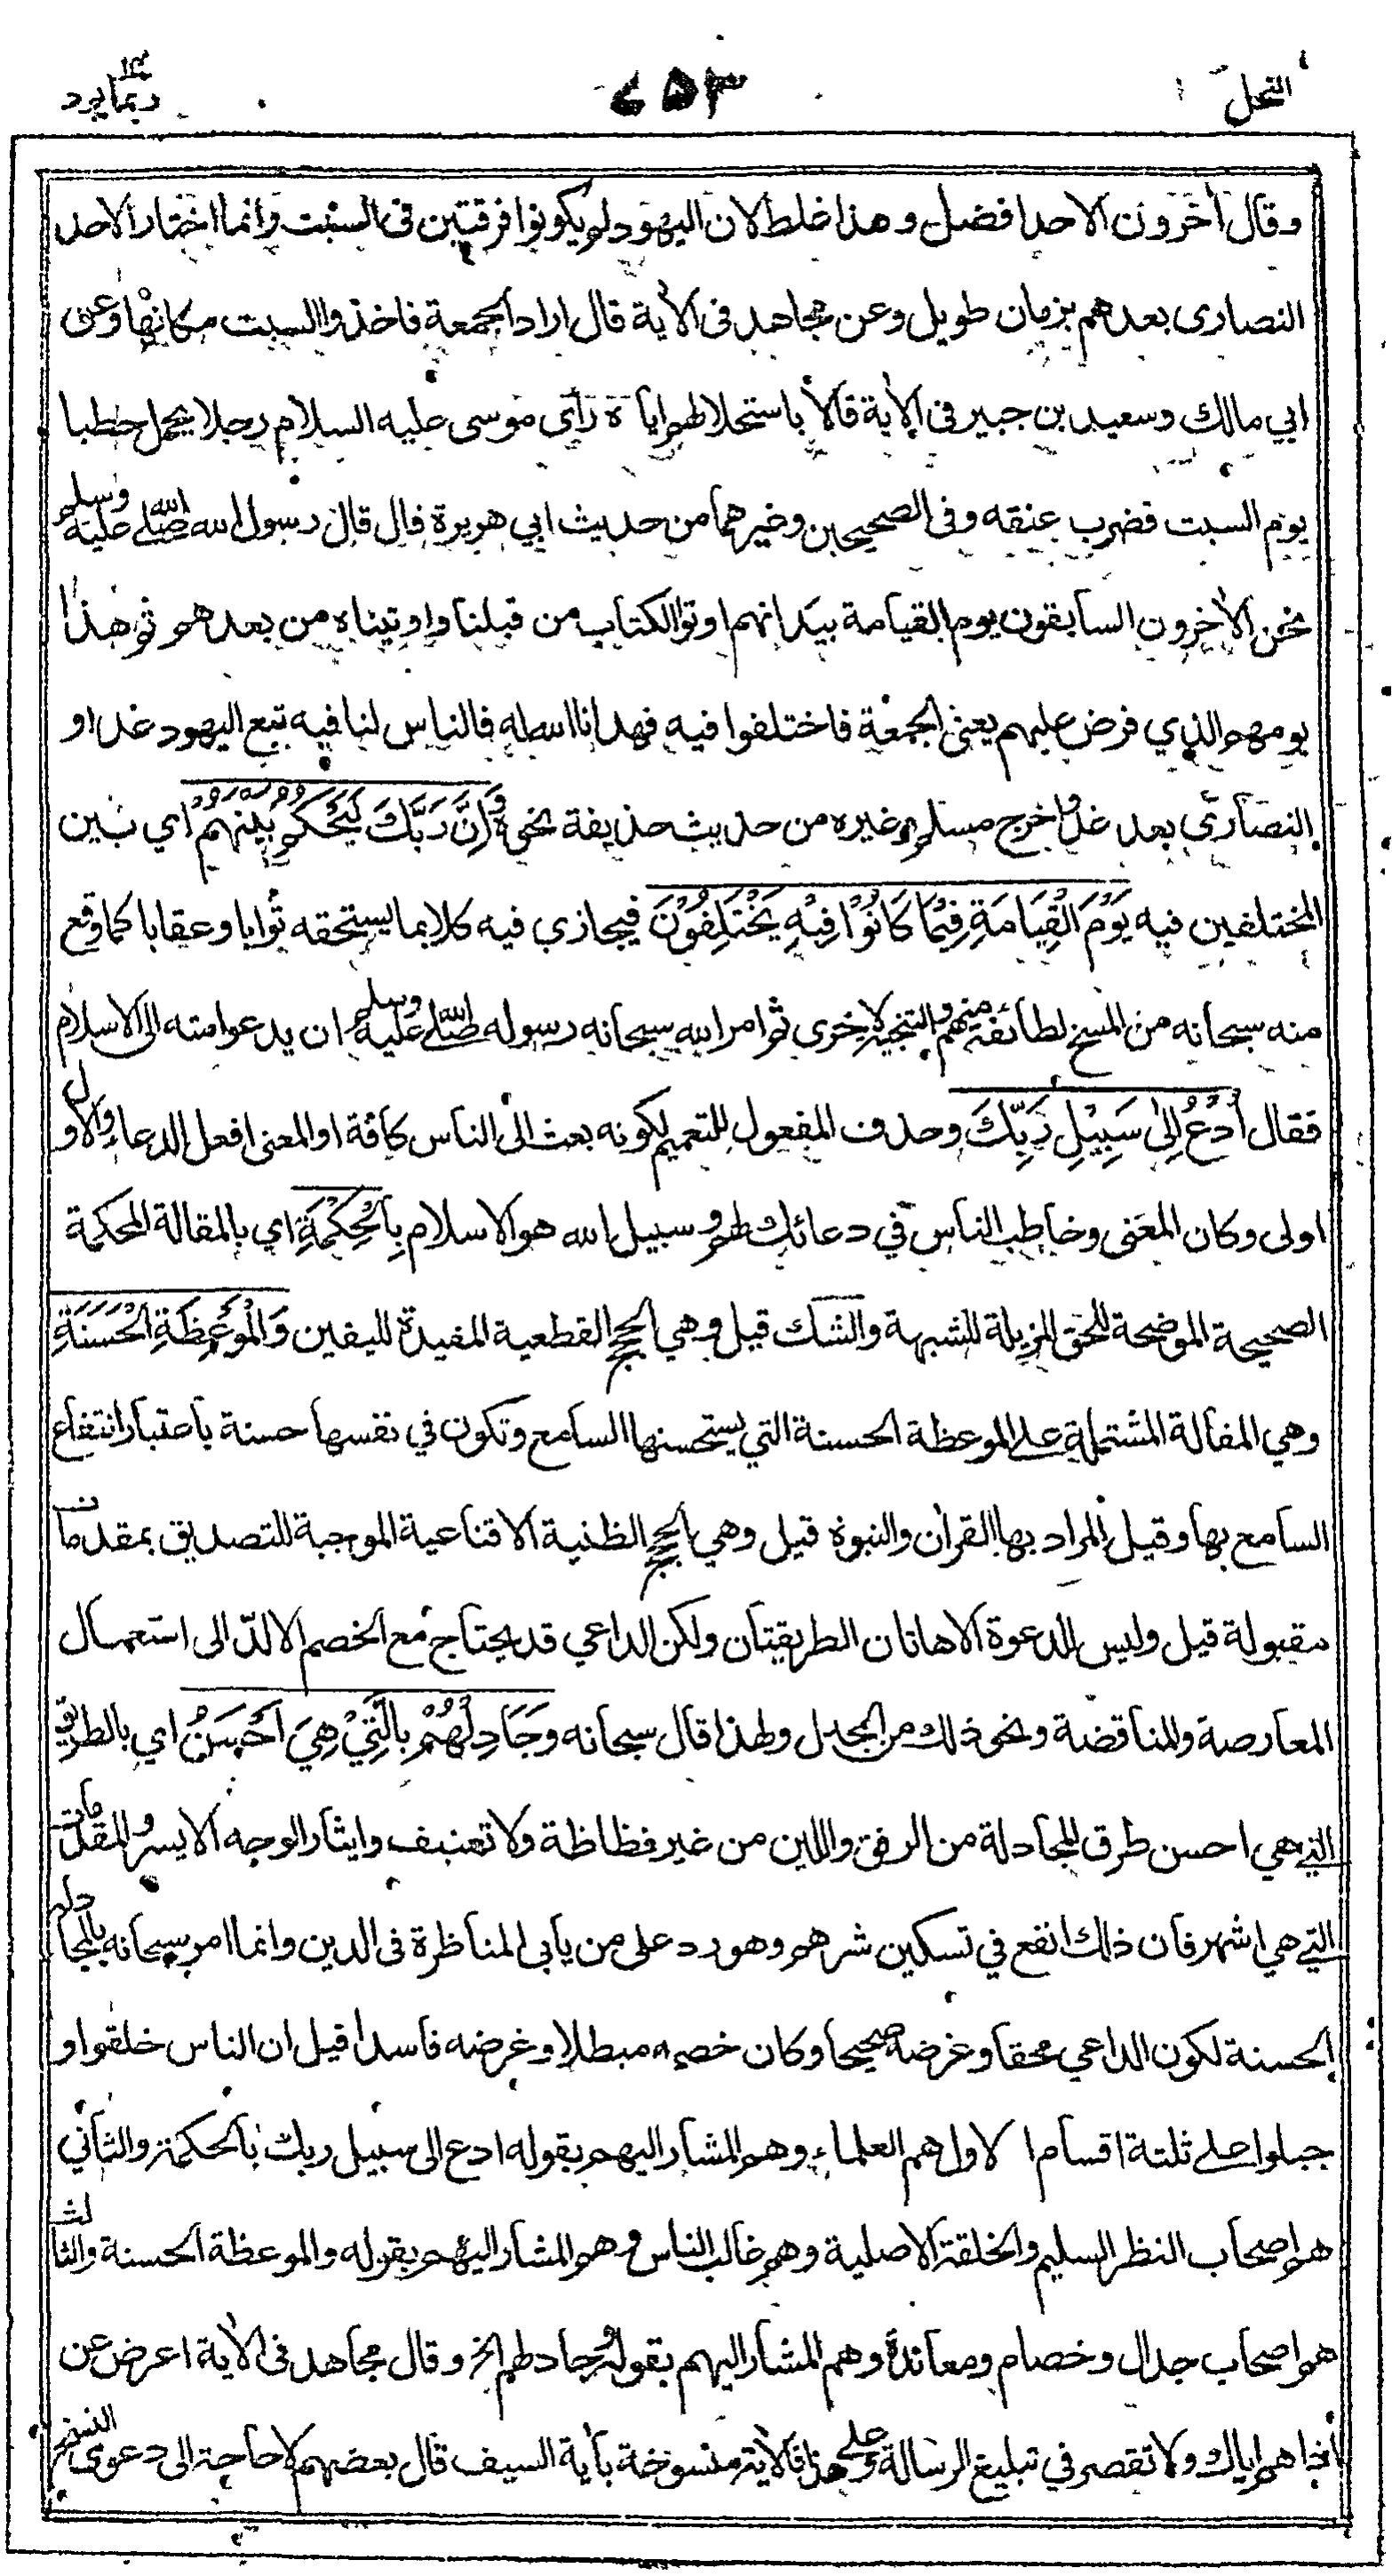 النحل
٧٥٣
ربما ١٤
وقال أخرون الاحد افضل وهذا غلط لان اليهود لم يكونوا فرقتين فى السبت وانما اختار الاحد
النصارى بعدهم بزمان طويل وعن مجاهد فى الأية قال اراد الجمعة فاخذوا السبت مكانها وعن
ابي مالك وسعيد بن جبير فى الأية قالا باستحلالهم اياه رأى موسى عليه السلام رجلا يحمل حطبا
يوم السبت فضرب عنقه وفى الصحيحين وغيرهما من حديث ابي هريرة قال قال رسول الله صلى الله عليه وسلم
نحن الأخرون السابقون يوم القيامة بيد انهم اوتوا الكتاب من قبلنا واوتيناه من بعدهم ثم هذا
يومهم الذي فرض عليهم يعنى الجمعة فاختلفوا فيه فهدانا الله له فالناس لنا فيه تبع اليهود غدا و
النصارى بعد غد واخرج مسلم وغيره من حديث حذيفة نحوه وَاِنَّ رَبَّكَ لَيَحْكُمُ بَيْنَهُمْ اي بين
المختلفين فيه يَوْمَ الْقِيَامَةِ فِيْمَا كَانُوْا فِيْهِ يَخْتَلِفُوْنَ فيجازي فيه كلا بما يستحقه ثوابا وعقابا كما وقع
منه سبحانه من المسخ لطائفة منهم والتنجية لاخرى ثم امر الله سبحانه رسوله صلى الله عليه وسلم ان يدعو امته الى الاسلام
فقال اُدْعُ اِلٰى سَبِيْلِ رَبِّكَ وحذف المفعول للتعميم لكونه بعث الى الناس كافة او المعنى افعل الدعاء والأول
اولى وكان المعنى وخاطب الناس في دعائك لهم و سبيل الله هو الاسلام بِالْحِكْمَةِ اي بالمقالة المحكمة
الصحيحة الموضحة للحق المزيلة للشبهة والشك قيل وهي الحجج القطعية المفيدة لليقين وَالْمَوْعِظَةِ الْحَسَنَةِ
وهي المقالة المشتملة على الموعظة الحسنة التي يستحسنها السامع وتكون في نفسها حسنة باعتبار انتفاع
السامع بها وقيل المراد بها القرأن والنبوة قيل وهي الحجج الظنية الاقناعية الموجبة للتصديق بمقدمات
مقبولة قيل وليس للدعوة الا هاتان الطريقتان ولكن الداعي قد يحتاج مع الخصم الالدّ الى استعمال
المعارضة والمناقضة ونحو ذلك من الجدل ولهذا قال سبحانه وَجَادِلْهُمْ بِالَّتِيْ هِيَ اَحْسَنُ اي بالطريق
التي هي احسن طرق المجادلة من الرفق واللين من غير فظاظة ولا تعنيف وايثار الوجه الايسر والمقدمات
التي هي اشهر فان ذلك انفع في تسكين شرهم وهو رد على من يأبى المناظرة فى الدين وانما امر سبحانه بالمجادلة
الحسنة لكون الداعي محقا وغرضه صحيحا وكان خصمه مبطلا وغرضه فاسدا قيل ان الناس خلقوا و
جبلوا على ثلثة اقسام الاول هم العلماء وهم المشار اليهم بقوله ادع الى سبيل ربك بالحكمة والثاني
هم اصحاب النظر السليم والخلقة الاصلية وهم غالب الناس وهم المشار اليهم بقوله والموعظة الحسنة والثالث
هم اصحاب جدال وخصام ومعاندة وهم المشار اليهم بقوله وجادلهم الخ وقال مجاهد فى الأية اعرض عن
اذاهم اياك ولا تقصر في تبليغ الرسالة وعلى هذا فالأية منسوخة بأية السيف قال بعضهم لا حاجة الى دعوى النسخ